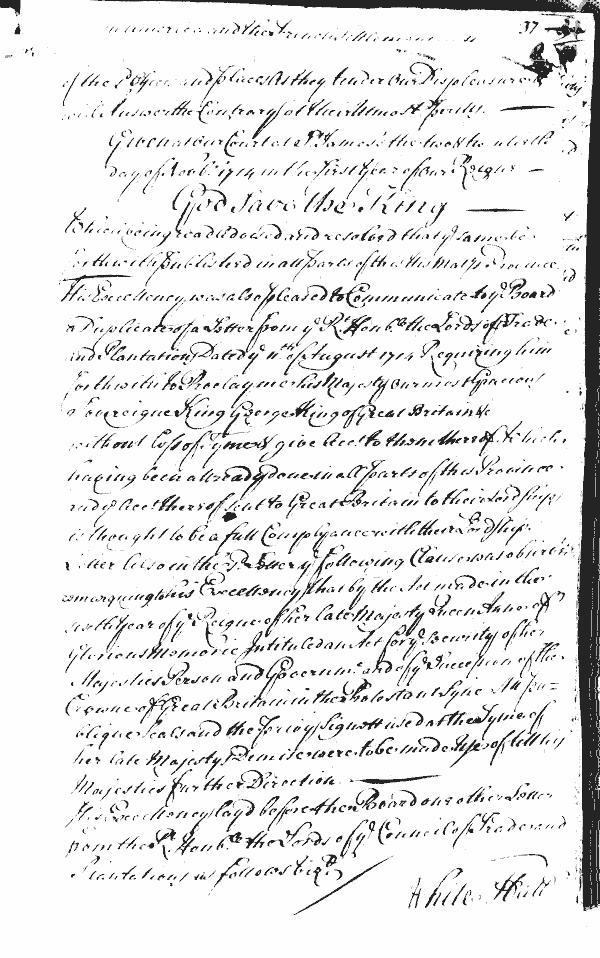 in America and the French Settlement
37
of the Offices and places as they tender Our Displeasure and
will Answer the Contrary at their Utmost Perills.
Given at our Court at St. James's the twenty
day of Novbr. 1714 in the First Year of Our Reigne
God Save the King
Which being read its advised and resolved that ye same be
forthwith published in all parts of this His Matys Province
His Excellency was also pleased to Communicate to ye Board
a Duplicate of a Letter from ye Rt. Honble the Lords of Trade
and Plantations Dated ye 11th of August 1714 Requiring him
forthwith to Proclayme his Majesty our most Gracious
Sovereigne King George King of Great Britain &c
without Loss of Tyme & give Acct. to them thereof Which
having been allready done in all parts of this Province
and ye Acct. thereof sent to Great Britain to their Lordships
is thought to be a full Complyance with their Lordships
Letter Also in the sd. Letter ye following Clause was observed
his Excellency that by the Act made in the
sixth Year of ye Reigne of her late Majesty Queen Anne of
Glorious Memorie Intituled an Act for ye Security of her
Majesties Person and Governmt. and of ye Succession of the
Crowne of Great Britain in the Protestant Lyne All Pu=
blique Seals and the Privy Signett used at the Tyme of
her late Majestys Demise were to be made Use of till his
Majesties further Direction
His Excellency layd before the Board one other Letter
from the Rt. Honble the Lords of ye Council of Trade and
Plantations as follows bizt.
White Hall